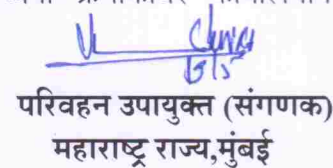 15/5
परिवहन उपायुक्त (संगणक)
महाराष्ट्र राज्य,मुंबई